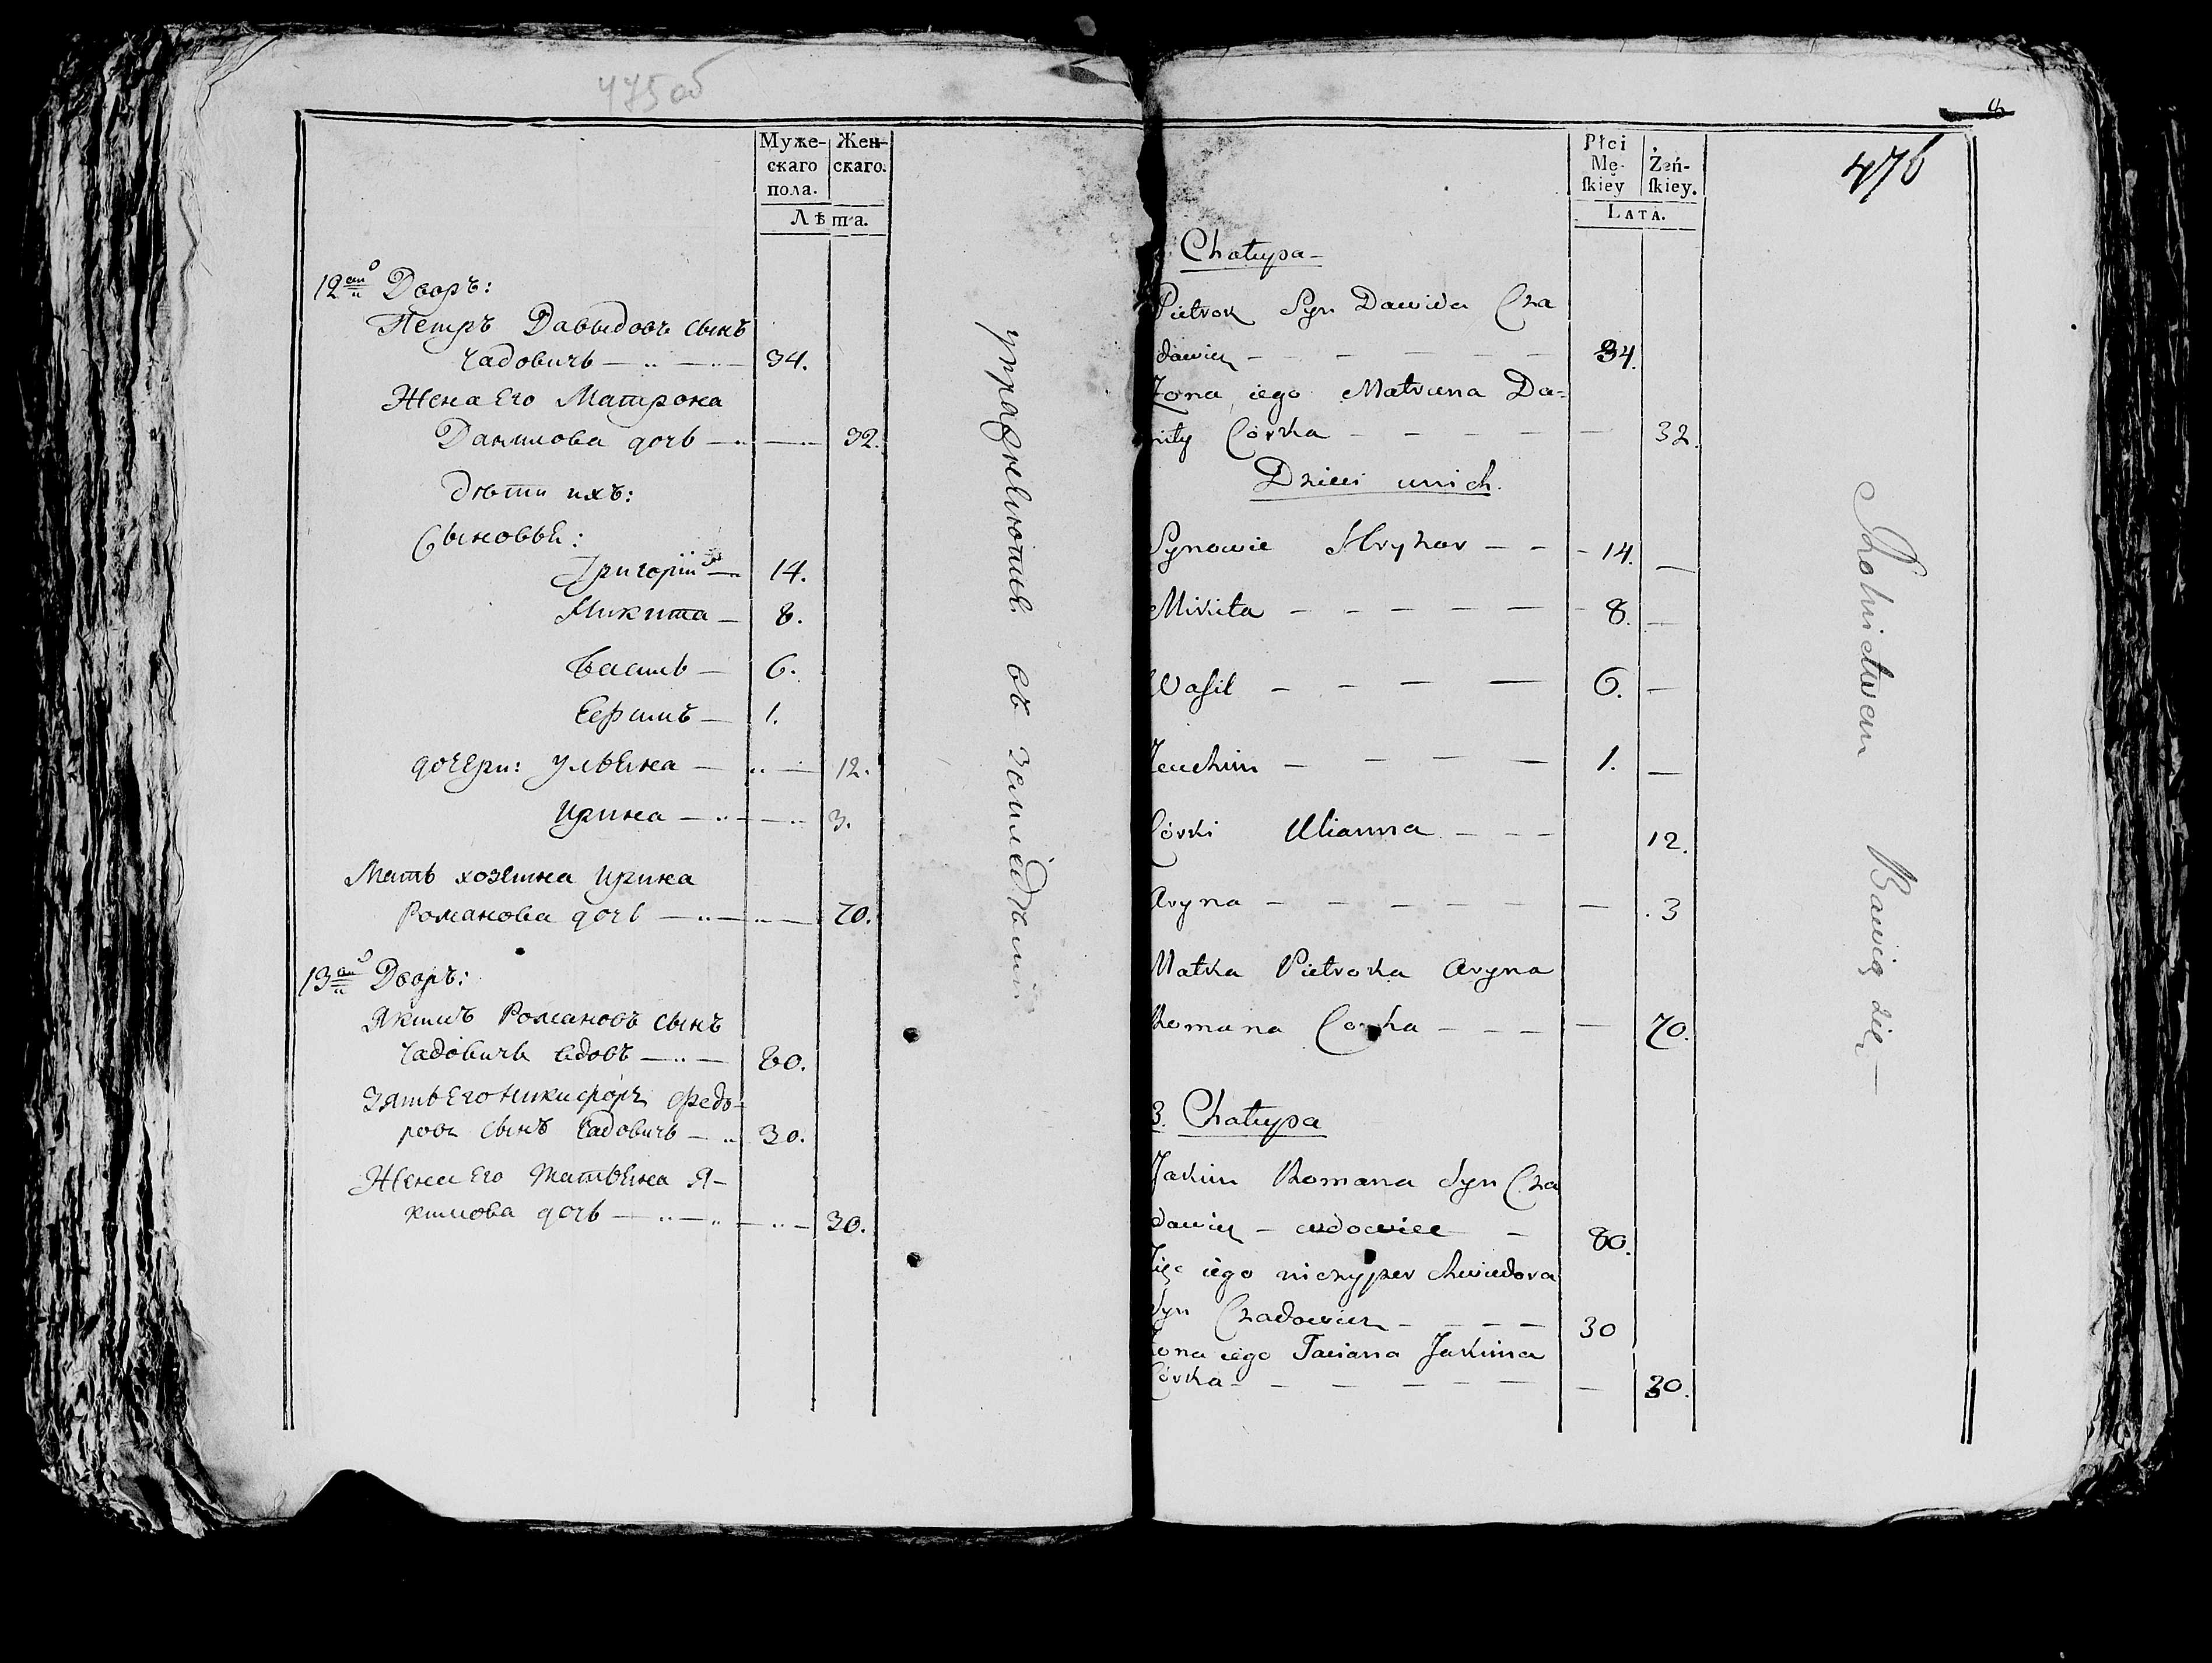 475 об
Муже-
скаго
пола.
Жен-
скаго.
Лѣта.
12ый Дворъ:
Петръ Давыдовъ сынъ
Чадовичь — 34.
Жена Его Матрона
Данилова дочь — 32.
дѣти ихъ:
Сыновьи:
Григорій — 14.
Микита — 8.
Василь — 6.
1.
дочери: Ульяна — 12.
Ирина — 3.
Мать хозяина Ирина
Романова дочь — 70.
13ый Дворъ:
Якимъ Романовъ сынъ
Чадовичь вдовъ — 80.
Зять Его Никифоръ Федо-
ровъ сынъ Чадовичь — 30.
Жена Его Татьяна Я-
кимова дочь — 30.
упражняютца въ замледѣлии
476
Płci
Mę-
ſkiey
Żeń-
ſkiey.
LATA.
Chałupa
Pietrok Syn Dawida Cza
dawicz — 34.
Żona iego Matruna Da=
niły Córka — 32.
Dzieci u nich.
Synowie Hryhor — 14.
Mikita — 8.
Wasil — 6.
1.
Córki Ulianna — 12.
Aryna — 3
Matka Pietroka Aryna
Romana Corka — 70.
3. Chałupa
Jakim Romana Syn Cza
dawicz — wdowiec — 80.
Zięć iego niczyper Chwiedora
Syn Czadowicz — 30
Żona iego Taciana Jakima
Córka — 30.
Rolnictwem Bawią się —